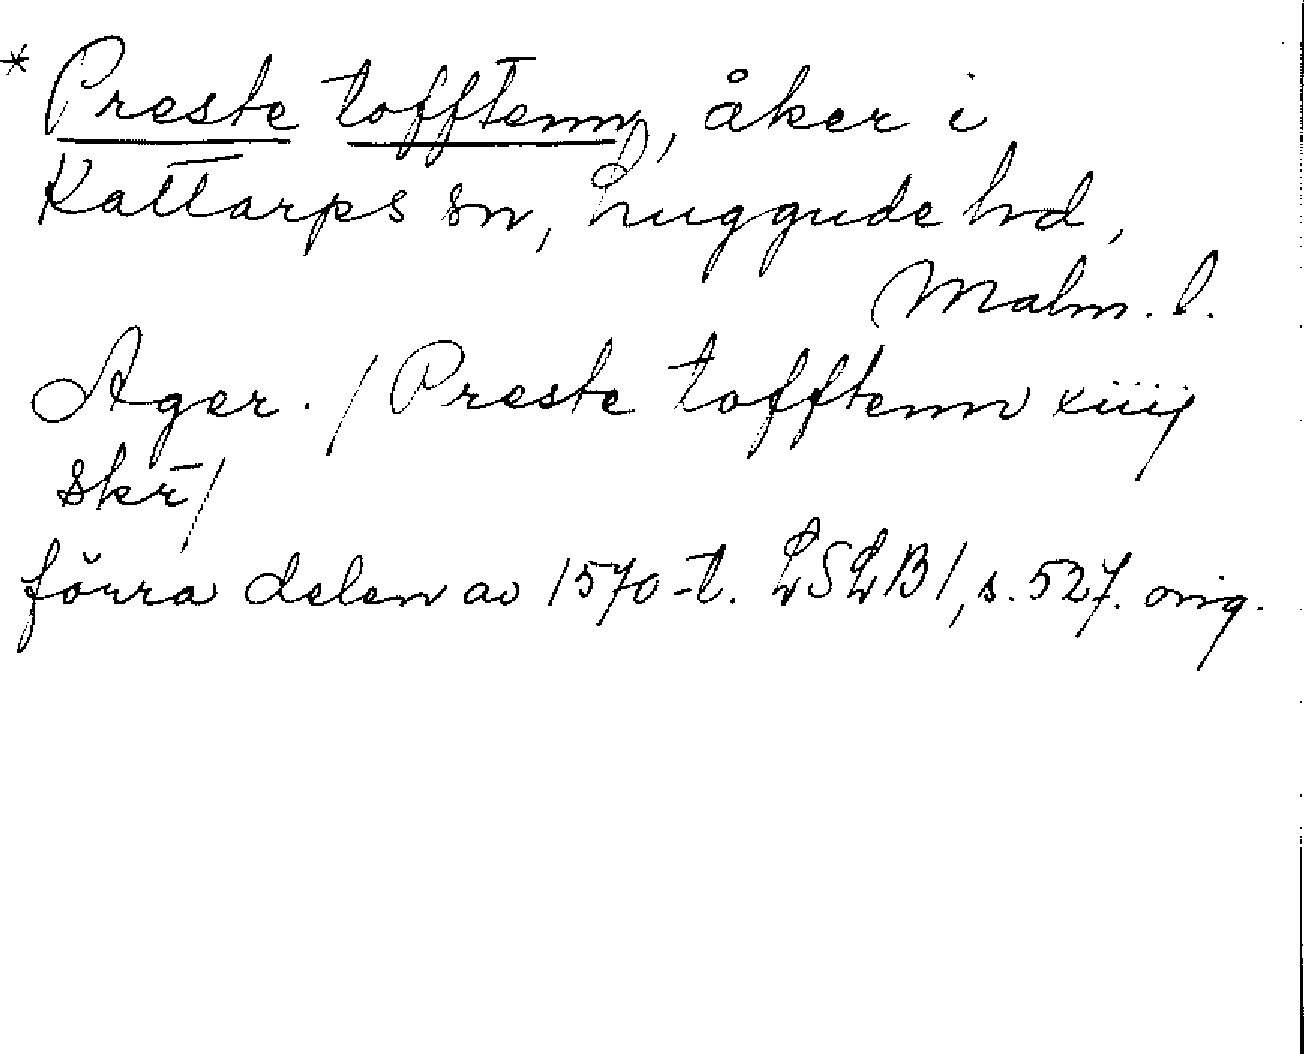 * Preste tofftenn, åker i
Kattarps sn, Luggude hd,
Malm. l.
Ager. / Preste tofftenn xiiij
skr̄ /
förra delen av 1570-t. LSLB1, s. 527. orig.